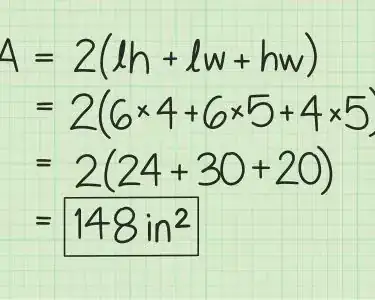 A = 2(lh + lw + hw)
= 2(6×4+6×5+4×5)
= 2(24+30+20)
= 148 in²